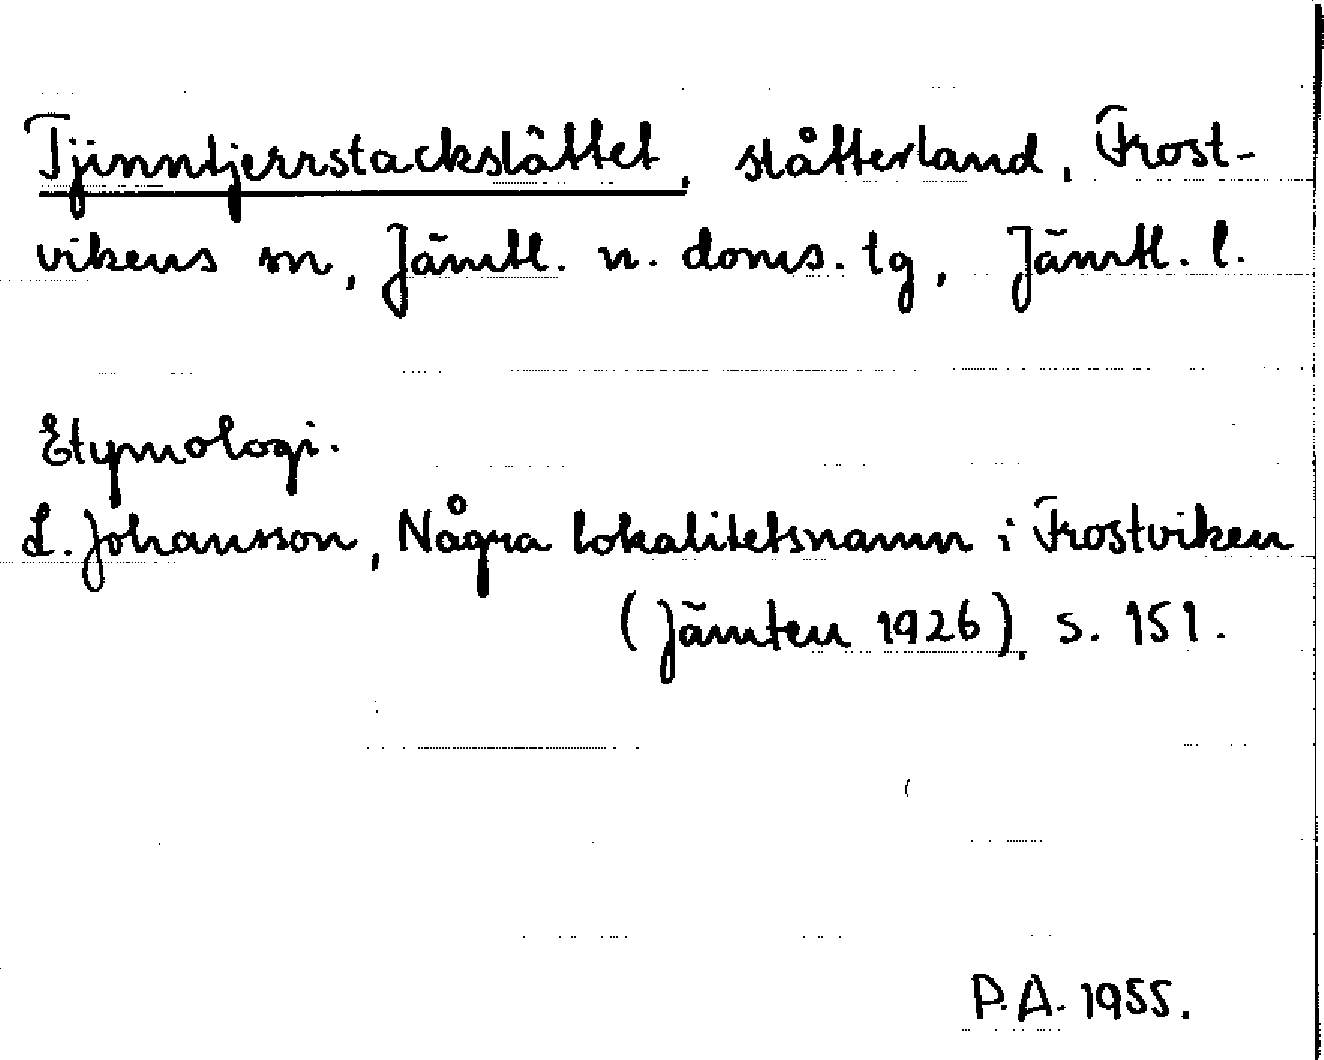 Tjinntjerrstackslåttet, slåtterland, Frost-
vikens sn, Jämtl. n. doms. tg, Jämtl. l.
Etymologi.
L. Johansson, Några lokalitetsnamn i Frostviken
(Jämten 1926), s. 151.
P.A. 1955.